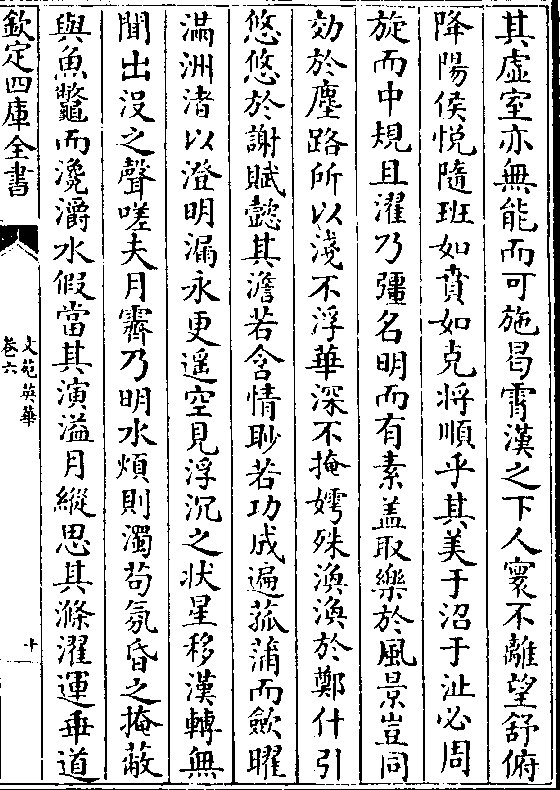 其虚室亦無能而可施曷霄漢之下人寰不離望舒俯
降陽侯恱隨班如賁如克將順乎其美于沼于沚必周
旋而中規且濯乃彊名明而有素盖取樂於風景豈同
効於塵路所以淺不浮華深不掩嫮殊渙渙於鄭什引
悠悠於謝賦懿其澹若含情眇若功成遍菰蒲而歛曜
滿洲渚以澄明漏永更遥空見浮沉之狀星移漢轉無
聞出没之聲嗟夫月霽乃明水煩則濁苟氛昏之掩蔽
與魚鼈而瀺灂水假當其演溢月縱思其滌濯運垂道
欽定四庫全書
文苑英華
卷六
十